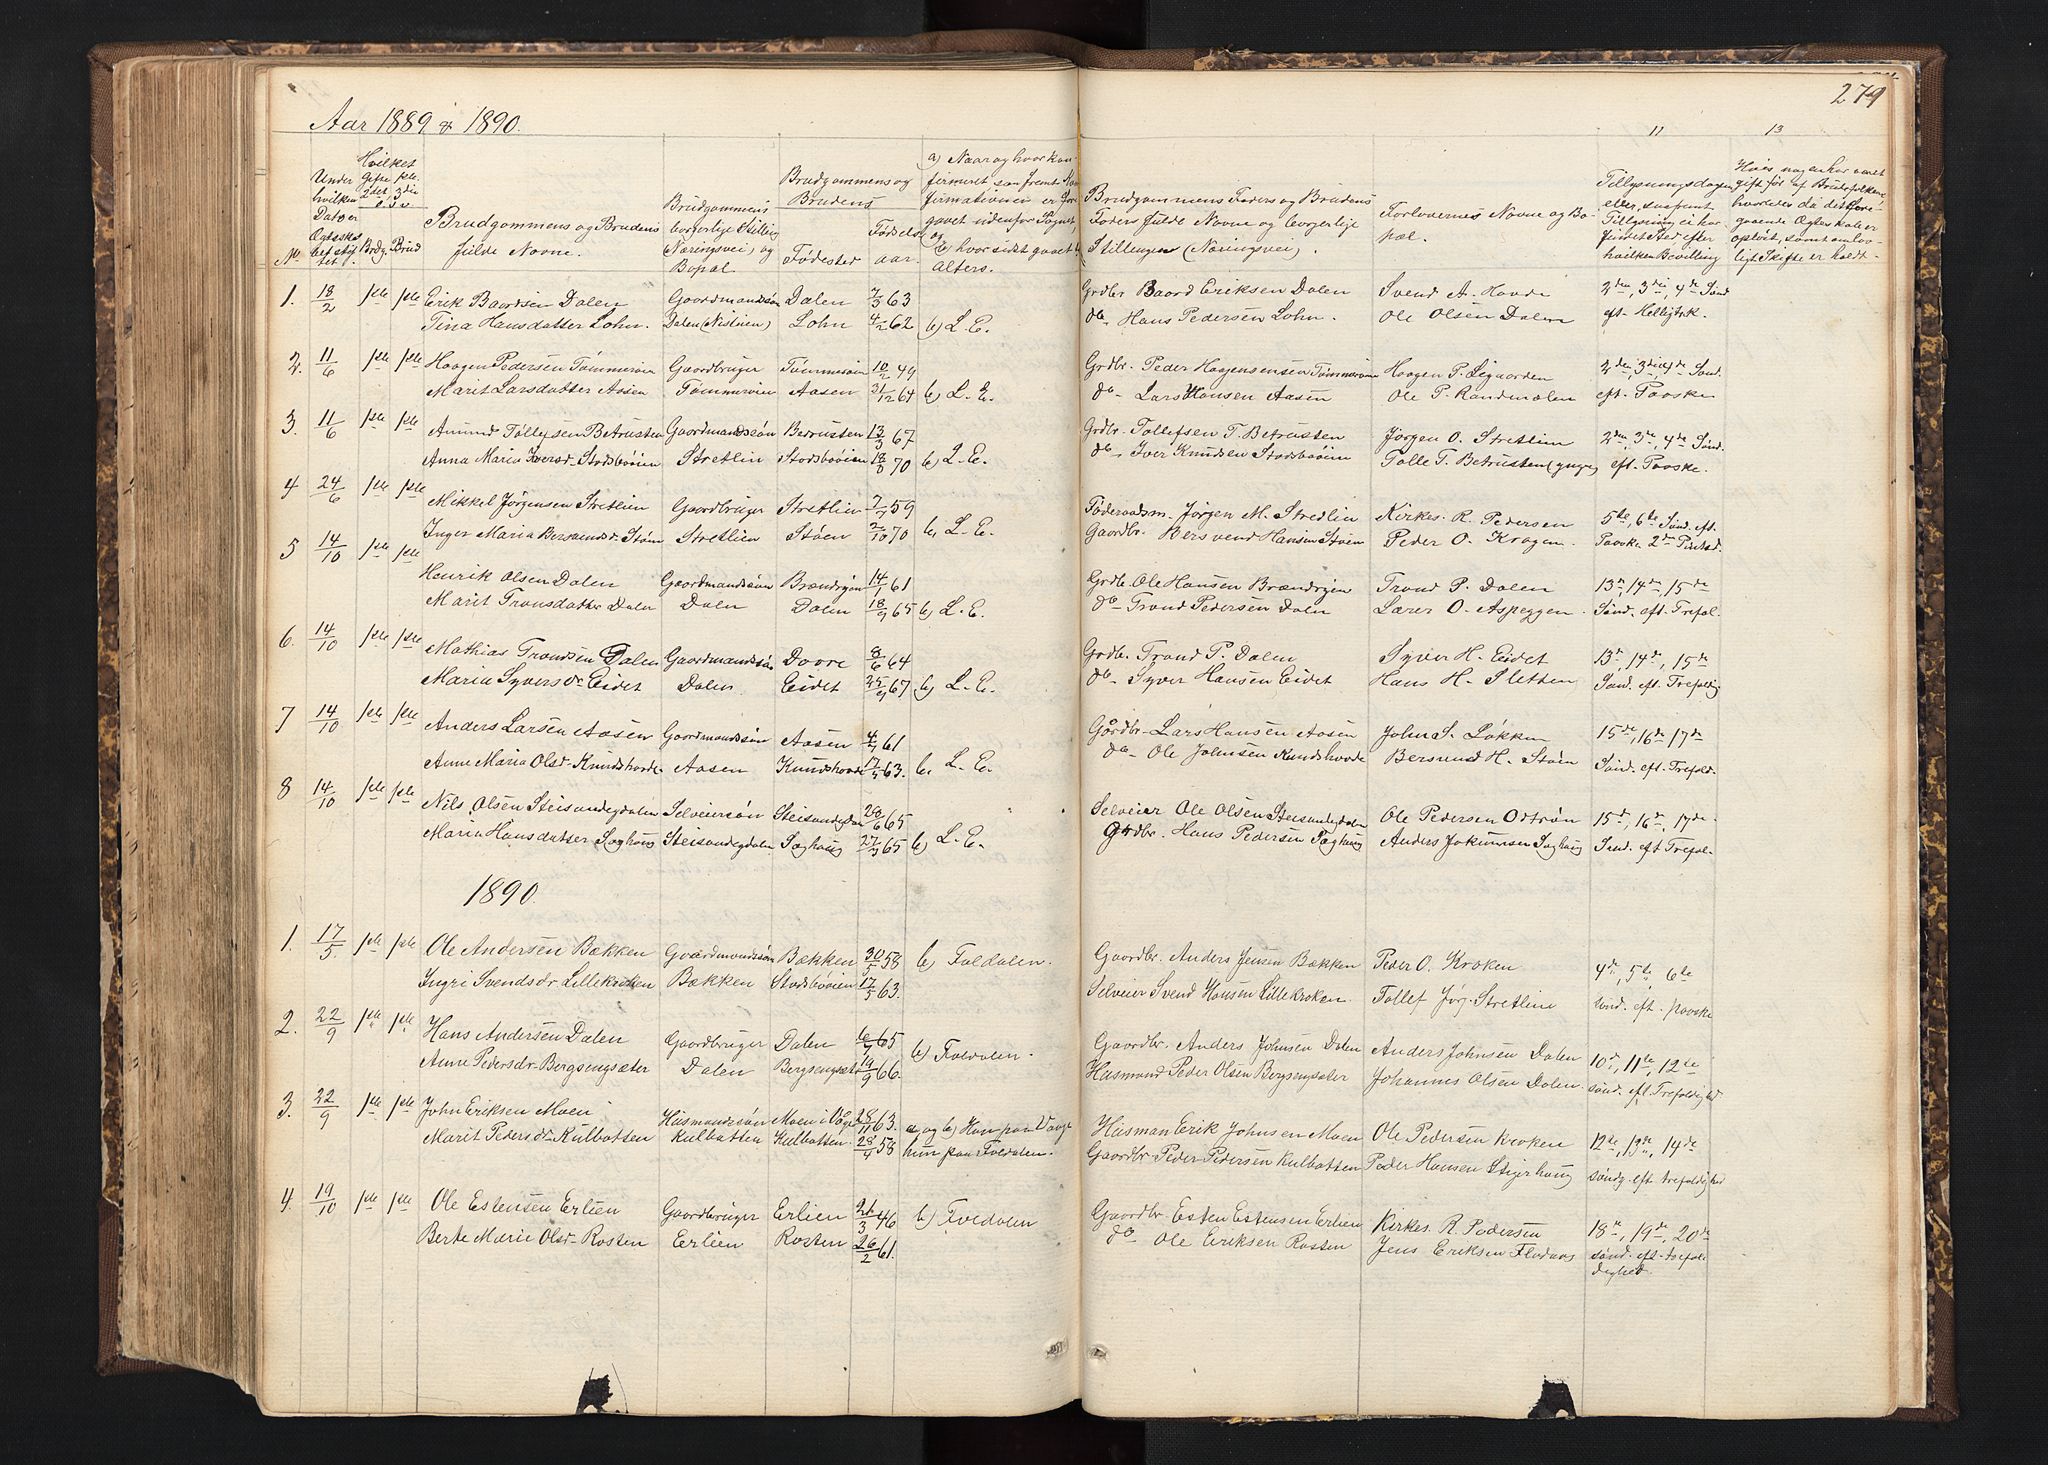 279
Aar 1889 & 1890.
11 13
No. Under hvilken Datoer Ægteskabet stiftet.
Hvilket Gifte 1ste 2det 3die o.s.v. Brdg. Brud
Brudgommens og Brudens fulde Navne.
Brudgommens borgerlige Stilling Næringsvei, og Bopæl.
Brudgommens og Brudens
Fødested Fødselsaar.
a) Naar og hvor konfirmeret, saafremt Konfirmationen er foregaaet udenfor Sognet, og
b) hvor sidst gaaet til Alters.
Brudgommens Faders og Brudens Faders fulde Navne og borgerlige Stillinger (Næringsvei).
Forlovernes Navne og Bopæl.
Tillysningsdagen eller, saafremt Tillysning ei har fundet Sted efter hvilken Bevilling
Hvis nogen har været gift før af Brudefolkene, hvorledes da det foregaaende Ægteskab er opløst, samt om lovligt Skifte er holdt.
1. 18/2 1ste 1ste Erik Baardsen Dalen Gaardmandssøn Dalen 7/3 63 Grdbr Baard Eriksen Dalen Svend A. Hovde 2den, 3die, 4de Sønd
Tina Hansdatter Lohn. Dalen (Nistuen) Lohn 4/2 62 b) L. E. do Hans Pedersen Lohn. Ole Olsen Dalen eft. Helligtrk.
2. 11/6 1ste 1ste Haagen Pedersen Tømmerøien Gaardbruger Tømmerøien 10/2 49 Grdbr. Peder Haagensen Tømmerøien Haagen P. Ligaarden 2den, 3die, 4de Sønd.
Marit Larsdatter Aasen Tømmerøien Aasen 31/12 64 b) L. E. do Lars Hansen Aasen Ole P. Randmælen eft. Paaske
3. 11/6 1ste 1ste Amund Tollefsen Betrusten Gaardmandssøn Betrusten 13/3 67 Grdbr. Tollefsen T. Betrusten Jørgen O. Stretlien 2den, 3de, 4de Sønd.
Anna Maria Iversdr Stadsbøien Stretlin Stadsbøien 70 b) L. E. do Iver Knudsen Stadsbøien Tolle T. Betrusten (ynge) eft. Paaske.
4 24/6 1ste 1ste Mikkel Jørgensen Stretlien Gaardbruger Stretlien 7/7 59 Føderaadsm. Jørgen M. Stredlin Kirkes. R. Pedersen 5te, 6te Sønd. eft.
Inger Maria Bersvendsdr. Støen Stretlien Støen 2/10 70 b, L. E. Gaardbr. Bersvend Hansen Støen Peder O. Krogen. Paaske 2den Pintsd.
5 14/10 1ste 1ste Henrik Olsen Dalen Gaardmandssøn Brændrøien 14/1 61 Grdb. Ole Hansen Brændrøien Trond P. Dalen 13de, 14de, 15de
Marit Tronsdatter Dalen Dalen Dalen 18/9 65 b) L. E. do Trond Pedersen Dalen Lærer O. Aspeggen. Sønd. eft. Trefol.
6. 14/10 1ste 1ste Mathias Trondsen Dalen Gaardmandssøn Dovre 8/6 64 Grdb. Trond P. Dalen Syver H. Eidet 13de, 14de, 15de
Maria Syversdr Eidet Dalen. Eidet 25/9 67 b) L. E. do Syver Hansen Eidet Hans H. Sletten Sønd. eft. Trefoldig
7 14/10 1ste 1ste Anders Larsen Aasen Gaardmandssøn Aasen 4/7 61 Gårdbr. Lars Hansen Aasen John S. Løkken 15de, 16de 17de
Anne Maria Olsdr. Knudshovde Aasen Knudshovde 17/5 63. b, L. E. do Ole Johnsen Knudshovde Bersvend H. Støen Sønd. eft. Trefold.
8 14/10 1ste 1ste Nils Olsen Steisandegdalen Selveiersøn Steisandegdalen 20/6 65 Selveier Ole Olsen Steisandegdalen Ole Pedersen Odtrøn 15de, 16de, 17de
Maria Hansdatter Saghaug Steisandegdalen Saghaug 27/3 65 b) L. E. Grdbr. Hans Pedersen Saghaug Anders Jokumsen Saghaug Sønd. eft Trefol.
1890.
1. 17/5. 1ste 1ste Ole Andersen Bækken Gaardmandssøn Bækken 30/5 58 b) Foldalen. Gaardbr. Anders Jensen Bækken Peder O. Kroken 4de, 5te, 6te
Ingri Svendsdr Lillekroken Bækken Stadsbøien 17/5 63. Selveier Svend Hansen Lillekroken Tollef Jørg. Stretlien sønd. eft. paaske
2. 22/9 1ste 1ste Hans Andersen Dalen Gaardbruger Dalen 6/7 65 b) Foldalen. Gaardbr. Anders Johnsen Dalen Anders Johnsen Dalen 10de, 11te, 12te
Anne Pedersdr. Bergsengsæter Dalen Bergsengsæt 19/9 66. Husmand Peder Olsen Bergsengsæter Johannes Olsen Dalen. sønd. eft. Trefoldighed
3. 22/9 1ste 1ste John Eriksen Moen Husmandssøn Moen i Vågå 28/11 63. a og b) Han paa Vaage Husman Erik Johnsen Moen Ole Pedersen Kroken 12te, 13de, 14de
Marit Pedersdr Kulbotten Kulbotten Kulbotten. 28/4 58 hun paa Foldalen. Gaardbr Peder Pedersen Kulbotten Peder Hansen Stigerhaug søndg. eft trefoldighed
4. 19/10 1ste 1ste Ole Estensen Erlien Gaardbruger Erlien 21/3 46 b) Foldalen Gaardbr Esten Estensen Erlien Kirkes. R. Pedersen 18de, 19de, 20de
Berte Marie Olsdr Rosten Erlien Rosten 26/2 61. do Ole Eriksen Rosten Jens Eriksen Fludaas sønd. eft. trefol-
dighed.